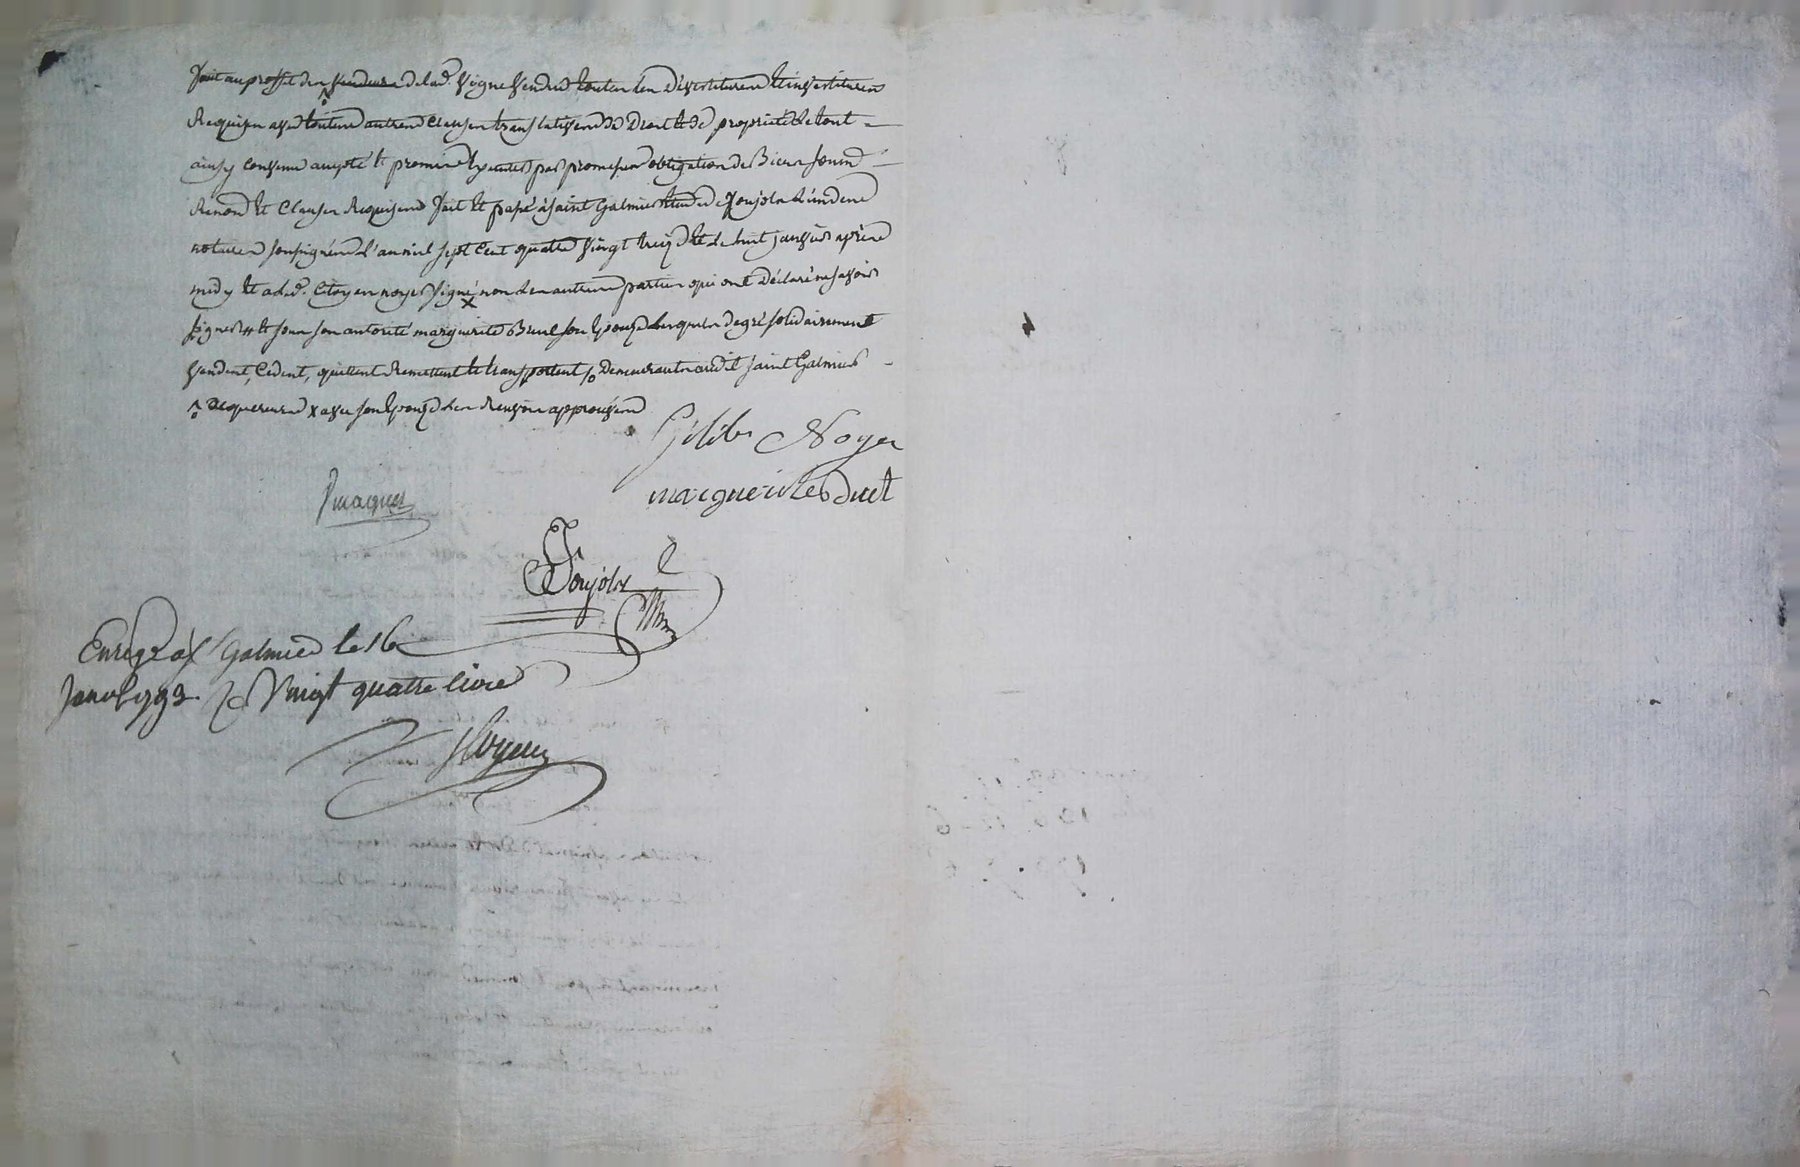 fait au proffit des vendeurs de lad. vigne vendue toutes les devestitures et investitures
Requises avec toutes autres clauses translatives de Droit et de propriété et tout
ainsy convenu accepté et promis executer par promesses obligation de Biens soumd
Renond et Clauses Requises fait et passé à saint Galmier etude de Joujols l'un des
notaires soussignés l'an mil sept cent quatre vingt treize et le huit janvier après
midy et a led. Citoyen noyer signé non les autres parties qui ont Déclaré ne savoir
signer et sous son autorité marguerite son Epouze lesquels de gré solidairement
vendent, Cedent, quittent Remettent et transportent Demeurants audit saint Galmier
acquereurs x avec son Epouze les Renvois approuvés
Noyer
marguerite
Joujols
Enregé a St Galmier le 16
Janvr 1793 Vingt quatre livre